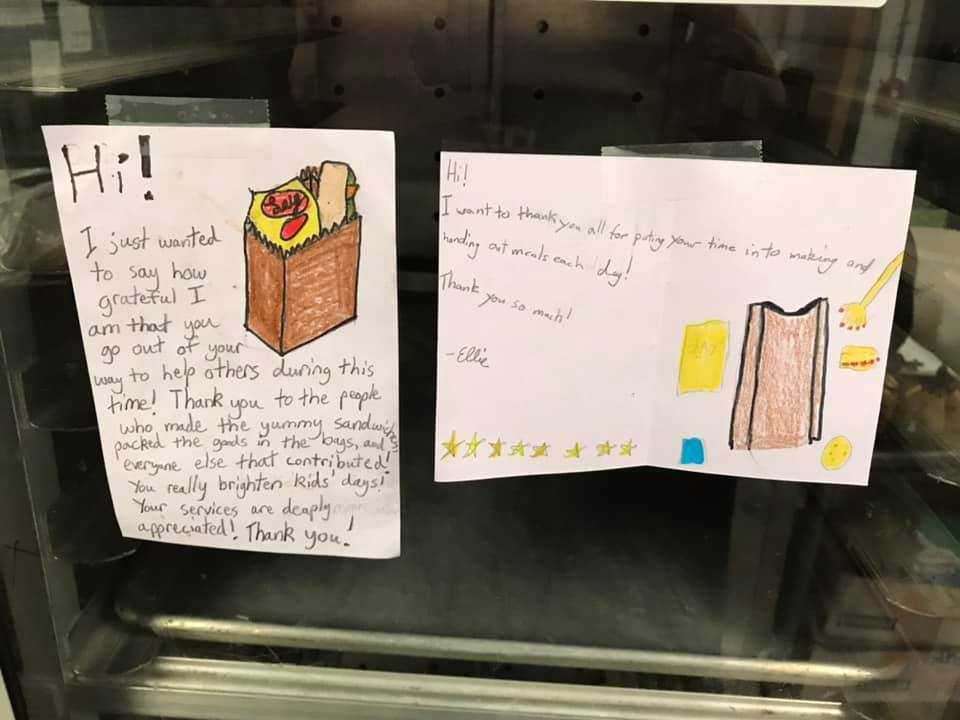 Hi!
I just wanted
to say how
grateful I
am that you
go out of your
way to help others during this
time! Thank you to the people
who made the yummy sandwiches,
packed the goods in the bags, and
everyone else that contributed!
You really brighten kids' days!
Your services are deaply
appreciated! Thank you!
Lay's
Hi!
I want to thank you all for puting your time into making and
handing out meals each day!
Thank you so much!
-Ellie